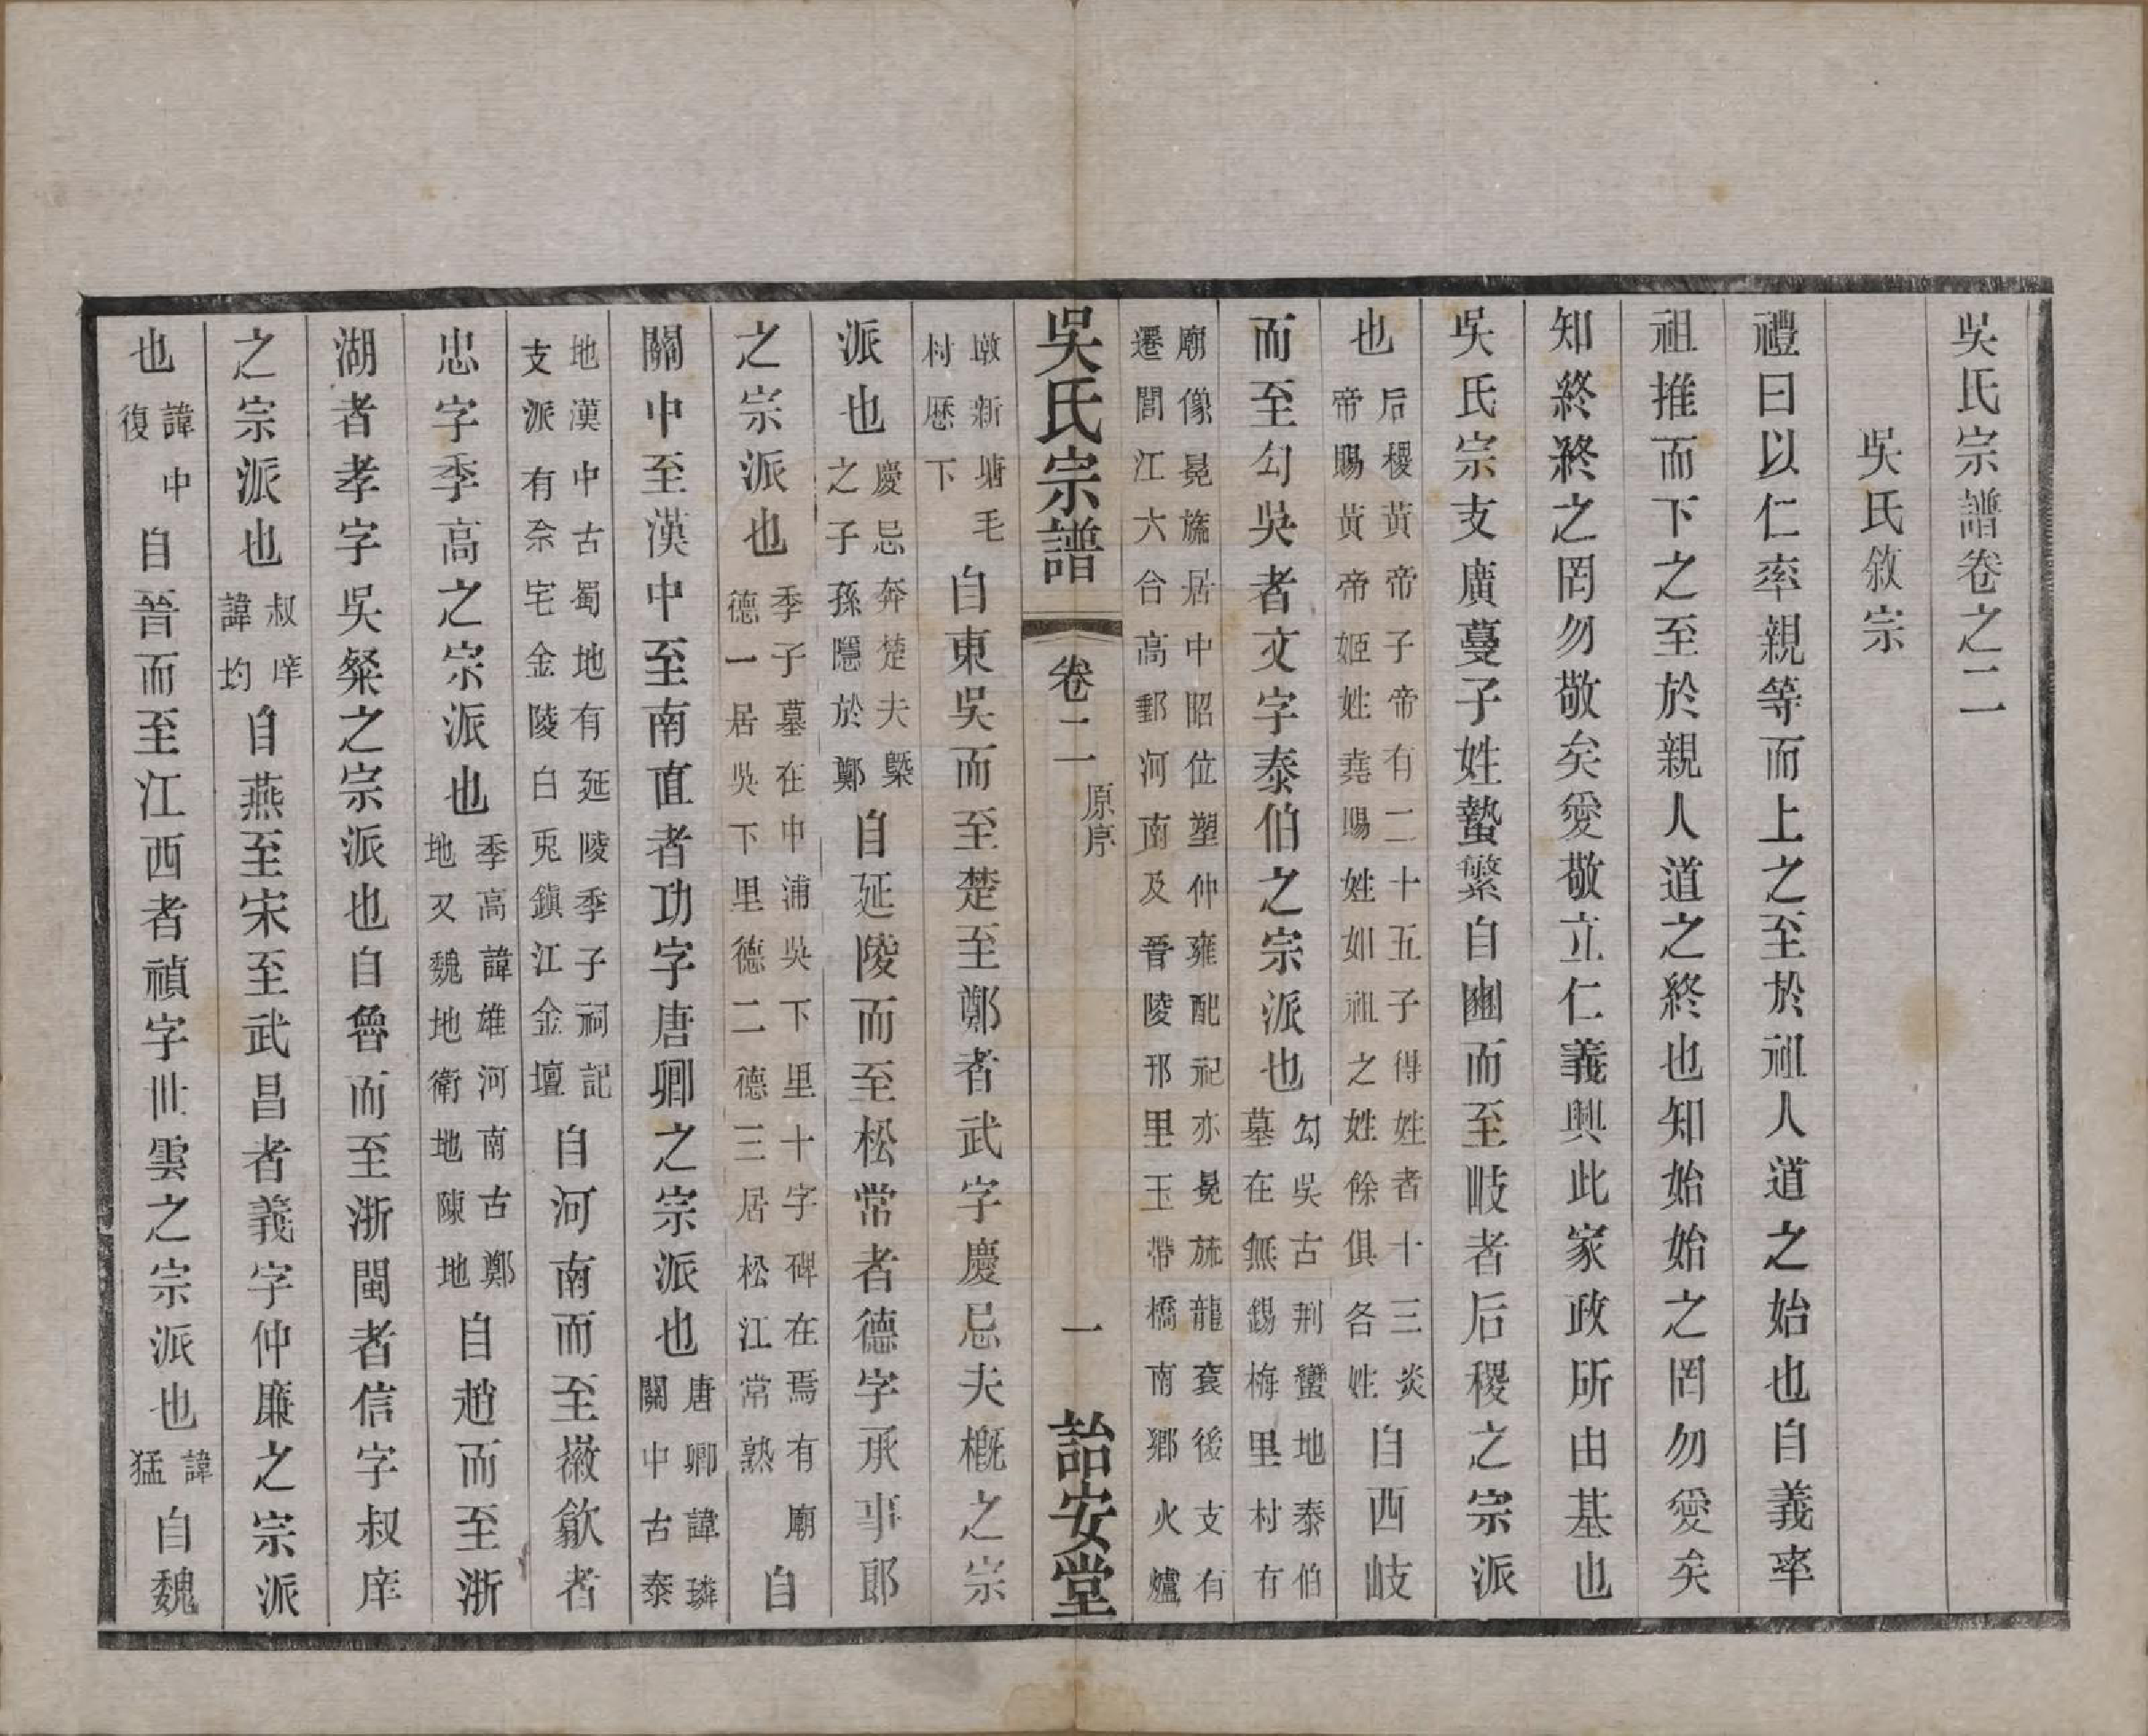 吳氏宗譜卷之二
吳氏敘宗
禮曰以仁率親等而上之至於祖人道之始也自義率
祖推而下之至於親人道之終也知始始之罔勿愛矣
知終終之罔勿敬矣愛敬立仁義興此家政所由基也
吳氏宗支廣蔓子姓蟄繁自豳而至岐者后稷之宗派
也
后稷黃帝子帝有二十五子得姓者十三炎
帝賜黃帝姬姓堯賜姓如祖之姓餘俱各姓
自西岐
而至勾吳者文字泰伯之宗派也
勾吳古荆蠻地泰伯
墓在無錫梅里村有
廟像冕旒居中昭位塑仲雍配祀亦冕旒龍袞後支有
遷閶江六合高郵河南及晉陵邗里玉帶橋南鄉火爐
吳氏宗譜
卷二
原序
一
詒安堂
墩新塘毛
村歴下
自東吳而至楚至鄭者武字慶忌夫概之宗
派也
慶忌奔楚夫槩
之子孫隱於鄭
自延陵而至松常者德字承事郎
之宗派也
季子墓在申浦吳下里十字碑在焉有廟
德一居吳下里德二德三居松江常熟
自
關中至漢中至南直者功字唐卿之宗派也
唐卿諱璘
關中古泰
地漢中古蜀地有延陵季子祠記
支派有奈宅金陵白兎鎮江金壇
自河南而至徽歙者
忠字季高之宗派也
季高諱雄河南古鄭
地又魏地衛地陳地
自趙而至浙
湖者孝字吳粲之宗派也自魯而至浙閩者信字叔庠
之宗派也
叔庠
諱均
自燕至宋至武昌者義字仲廉之宗派
也
諱中
復
自晉而至江西者禎字世雲之宗派也
諱
猛
自魏